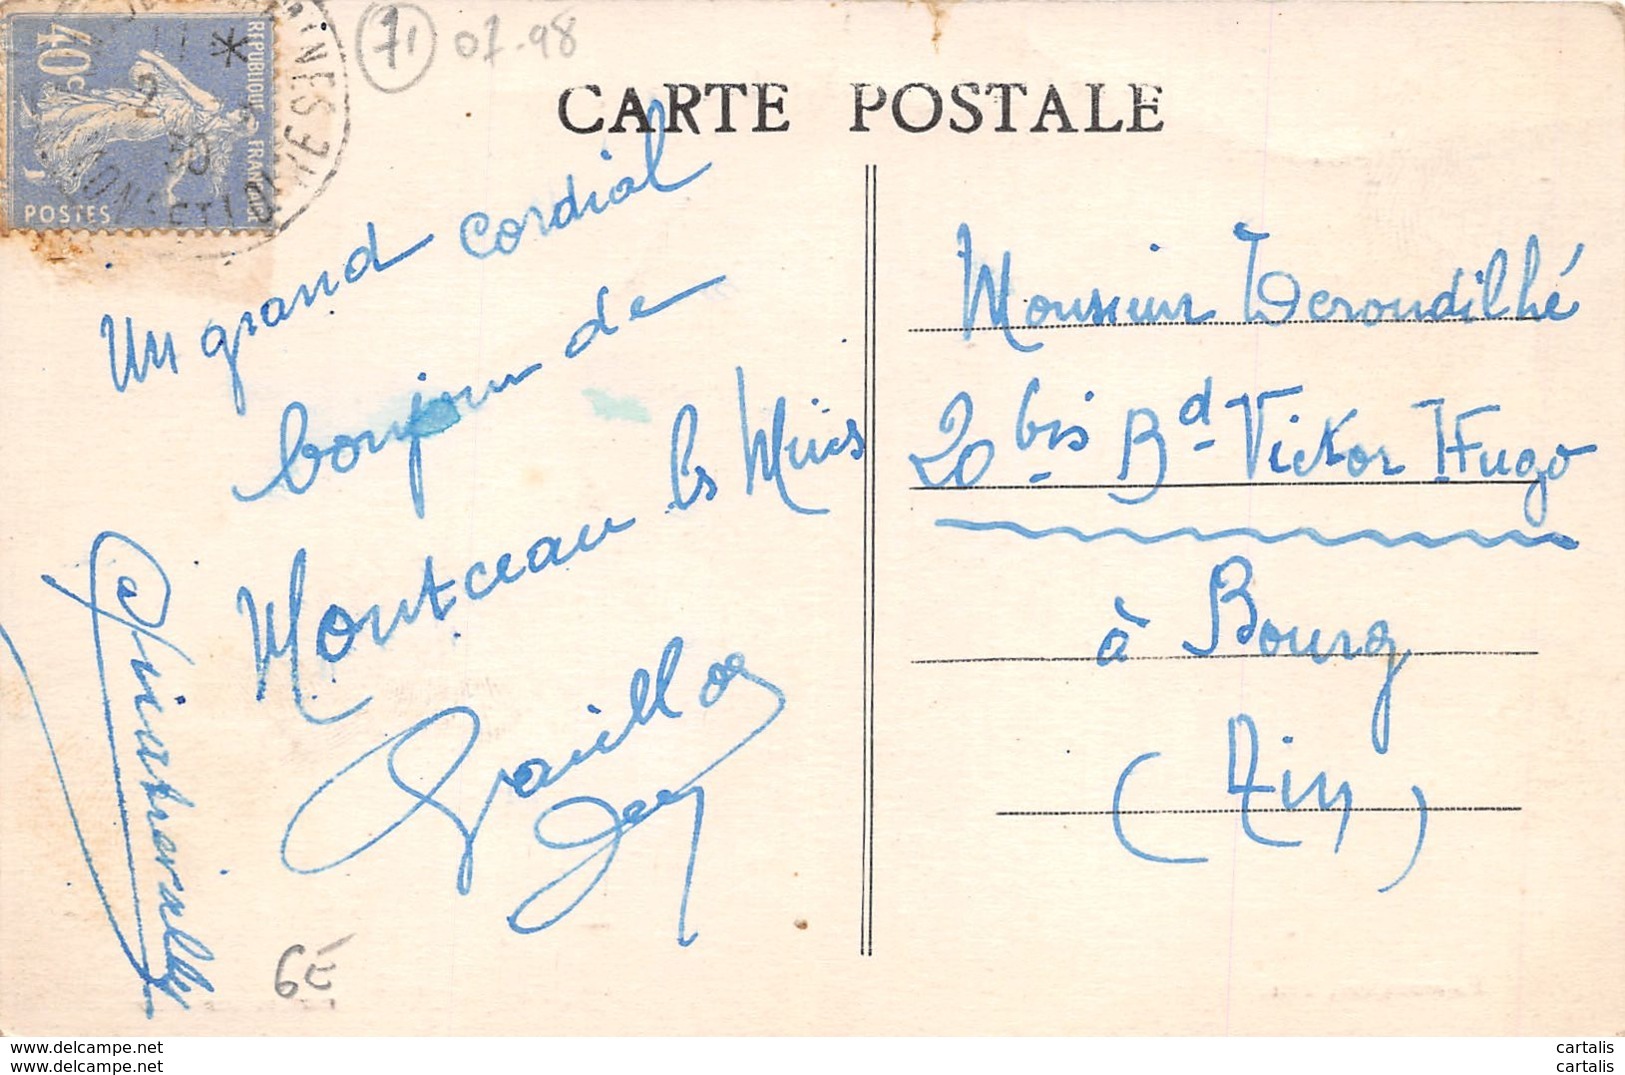 40c
REPUBLIQUE FRANÇAISE
POSTES
71
07-98
CARTE POSTALE
Un grand cordial
bonjour de
Montceau les Mines
6E
Monsieur Deroudilhé
20 bis Bd Victor Hugo
à Bourg
(Ain)
www.delcampe.net
www.delcampe.net
cartalis
cartalis